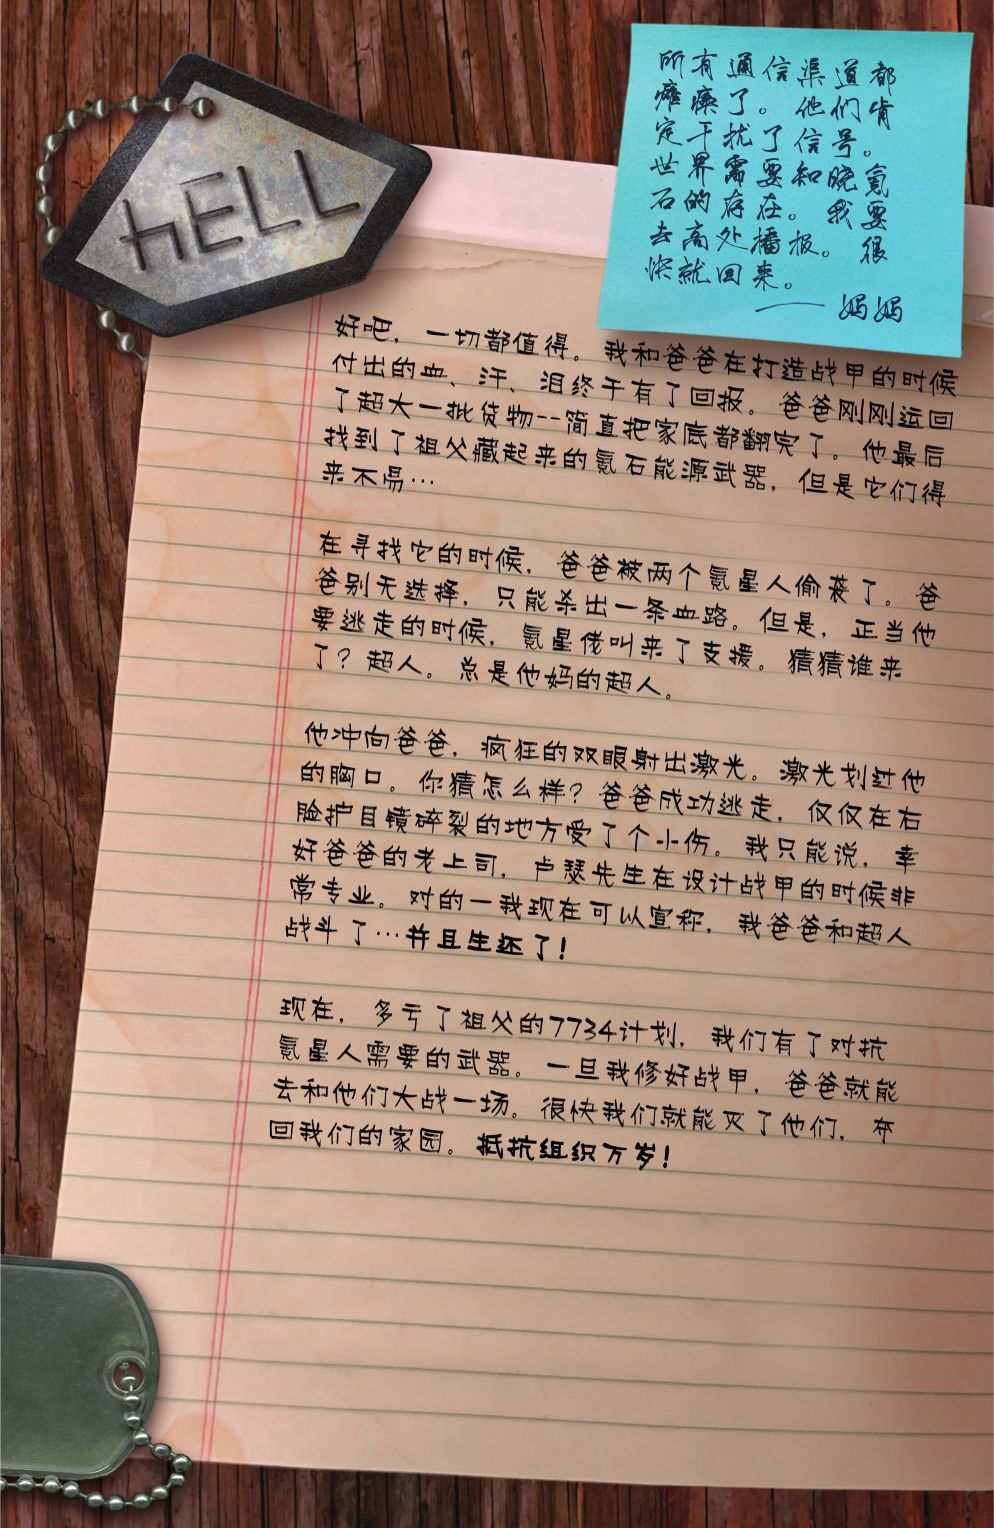 hELL
所有通信渠道都
瘫痪了。他们肯
定干扰了信号。
世界需要知晓氪
石的存在。我要
去高处播报。很
快就回来。
——妈妈
好吧，一切都值得。我和爸爸在打造战甲的时候
付出的血、汗、泪终于有了回报。爸爸刚刚运回
了超大一批货物--简直把家底都翻完了。他最后
找到了祖父藏起来的氪石能源武器，但是它们得
来不易…
在寻找它的时候，爸爸被两个氪星人偷袭了。爸
爸别无选择，只能杀出一条血路。但是，正当他
要逃走的时候，氪星佬叫来了支援。猜猜谁来
了？超人。总是他妈的超人。
他冲向爸爸，疯狂的双眼射出激光。激光划过他
的胸口。你猜怎么样？爸爸成功逃走，仅仅在右
脸护目镜碎裂的地方受了个小伤。我只能说，幸
好爸爸的老上司，卢瑟先生在设计战甲的时候非
常专业。对的一我现在可以宣称，我爸爸和超人
战斗了…并且生还了！
现在，多亏了祖父的7734计划，我们有了对抗
氪星人需要的武器。一旦我修好战甲，爸爸就能
去和他们大战一场。很快我们就能灭了他们，夺
回我们的家园。抵抗组织万岁！